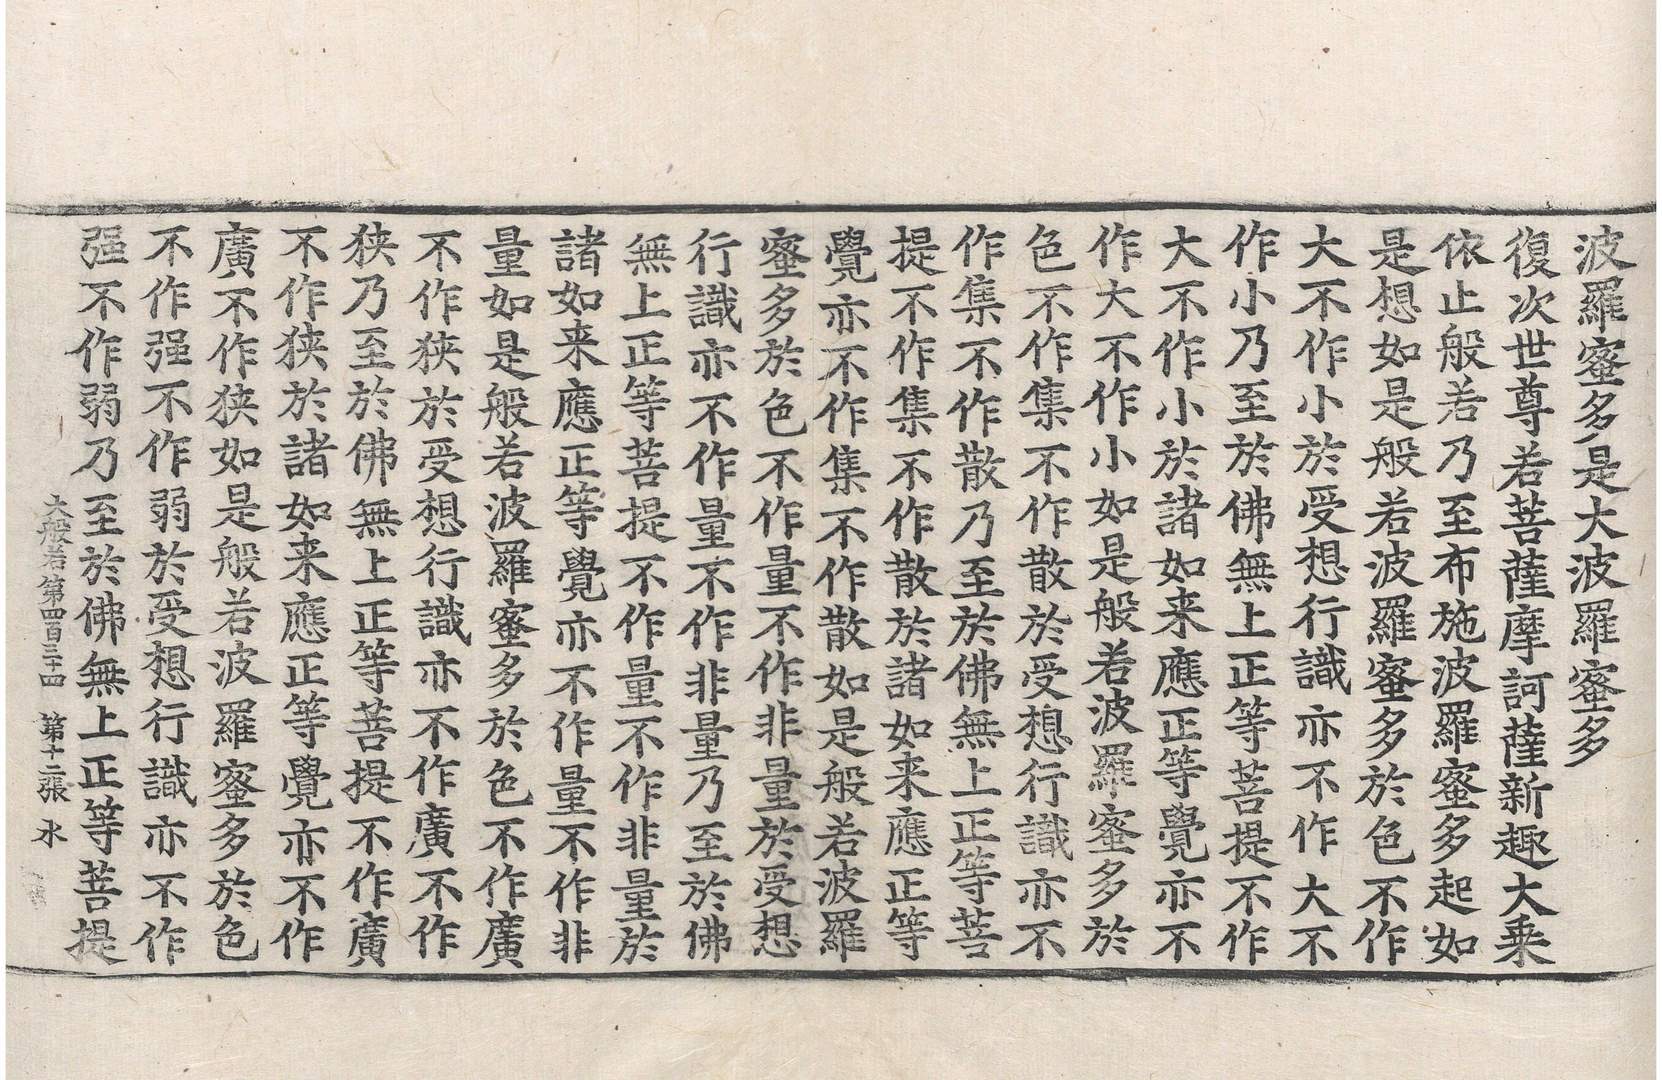 波羅蜜多是大波羅蜜多
復次世尊若菩薩摩訶薩新趣大乗
依止般若乃至布施波羅蜜多起如
是想如是般若波羅蜜多於色不作
大不作小於受想行識亦不作大不
作小乃至於佛無上正等菩提不作
大不作小於諸如来應正等覺亦不
作大不作小如是般若波羅蜜多於
色不作集不作散於受想行識亦不
作集不作散乃至於佛無上正等菩
提不作集不作散於諸如来應正等
覺亦不作集不作散如是般若波羅
蜜多於色不作量不作非量於受想
行識亦不作量不作非量乃至於佛
無上正等菩提不作量不作非量於
諸如来應正等覺亦不作量不作非
量如是般若波羅蜜多於色不作廣
不作狭於受想行識亦不作廣不作
狭乃至於佛無上正等菩提不作廣
不作狭於諸如来應正等覺亦不作
廣不作狭如是般若波羅蜜多於色
不作强不作弱於受想行識亦不作
强不作弱乃至於佛無上正等菩提
大般若第四百三十四 第十二張 水